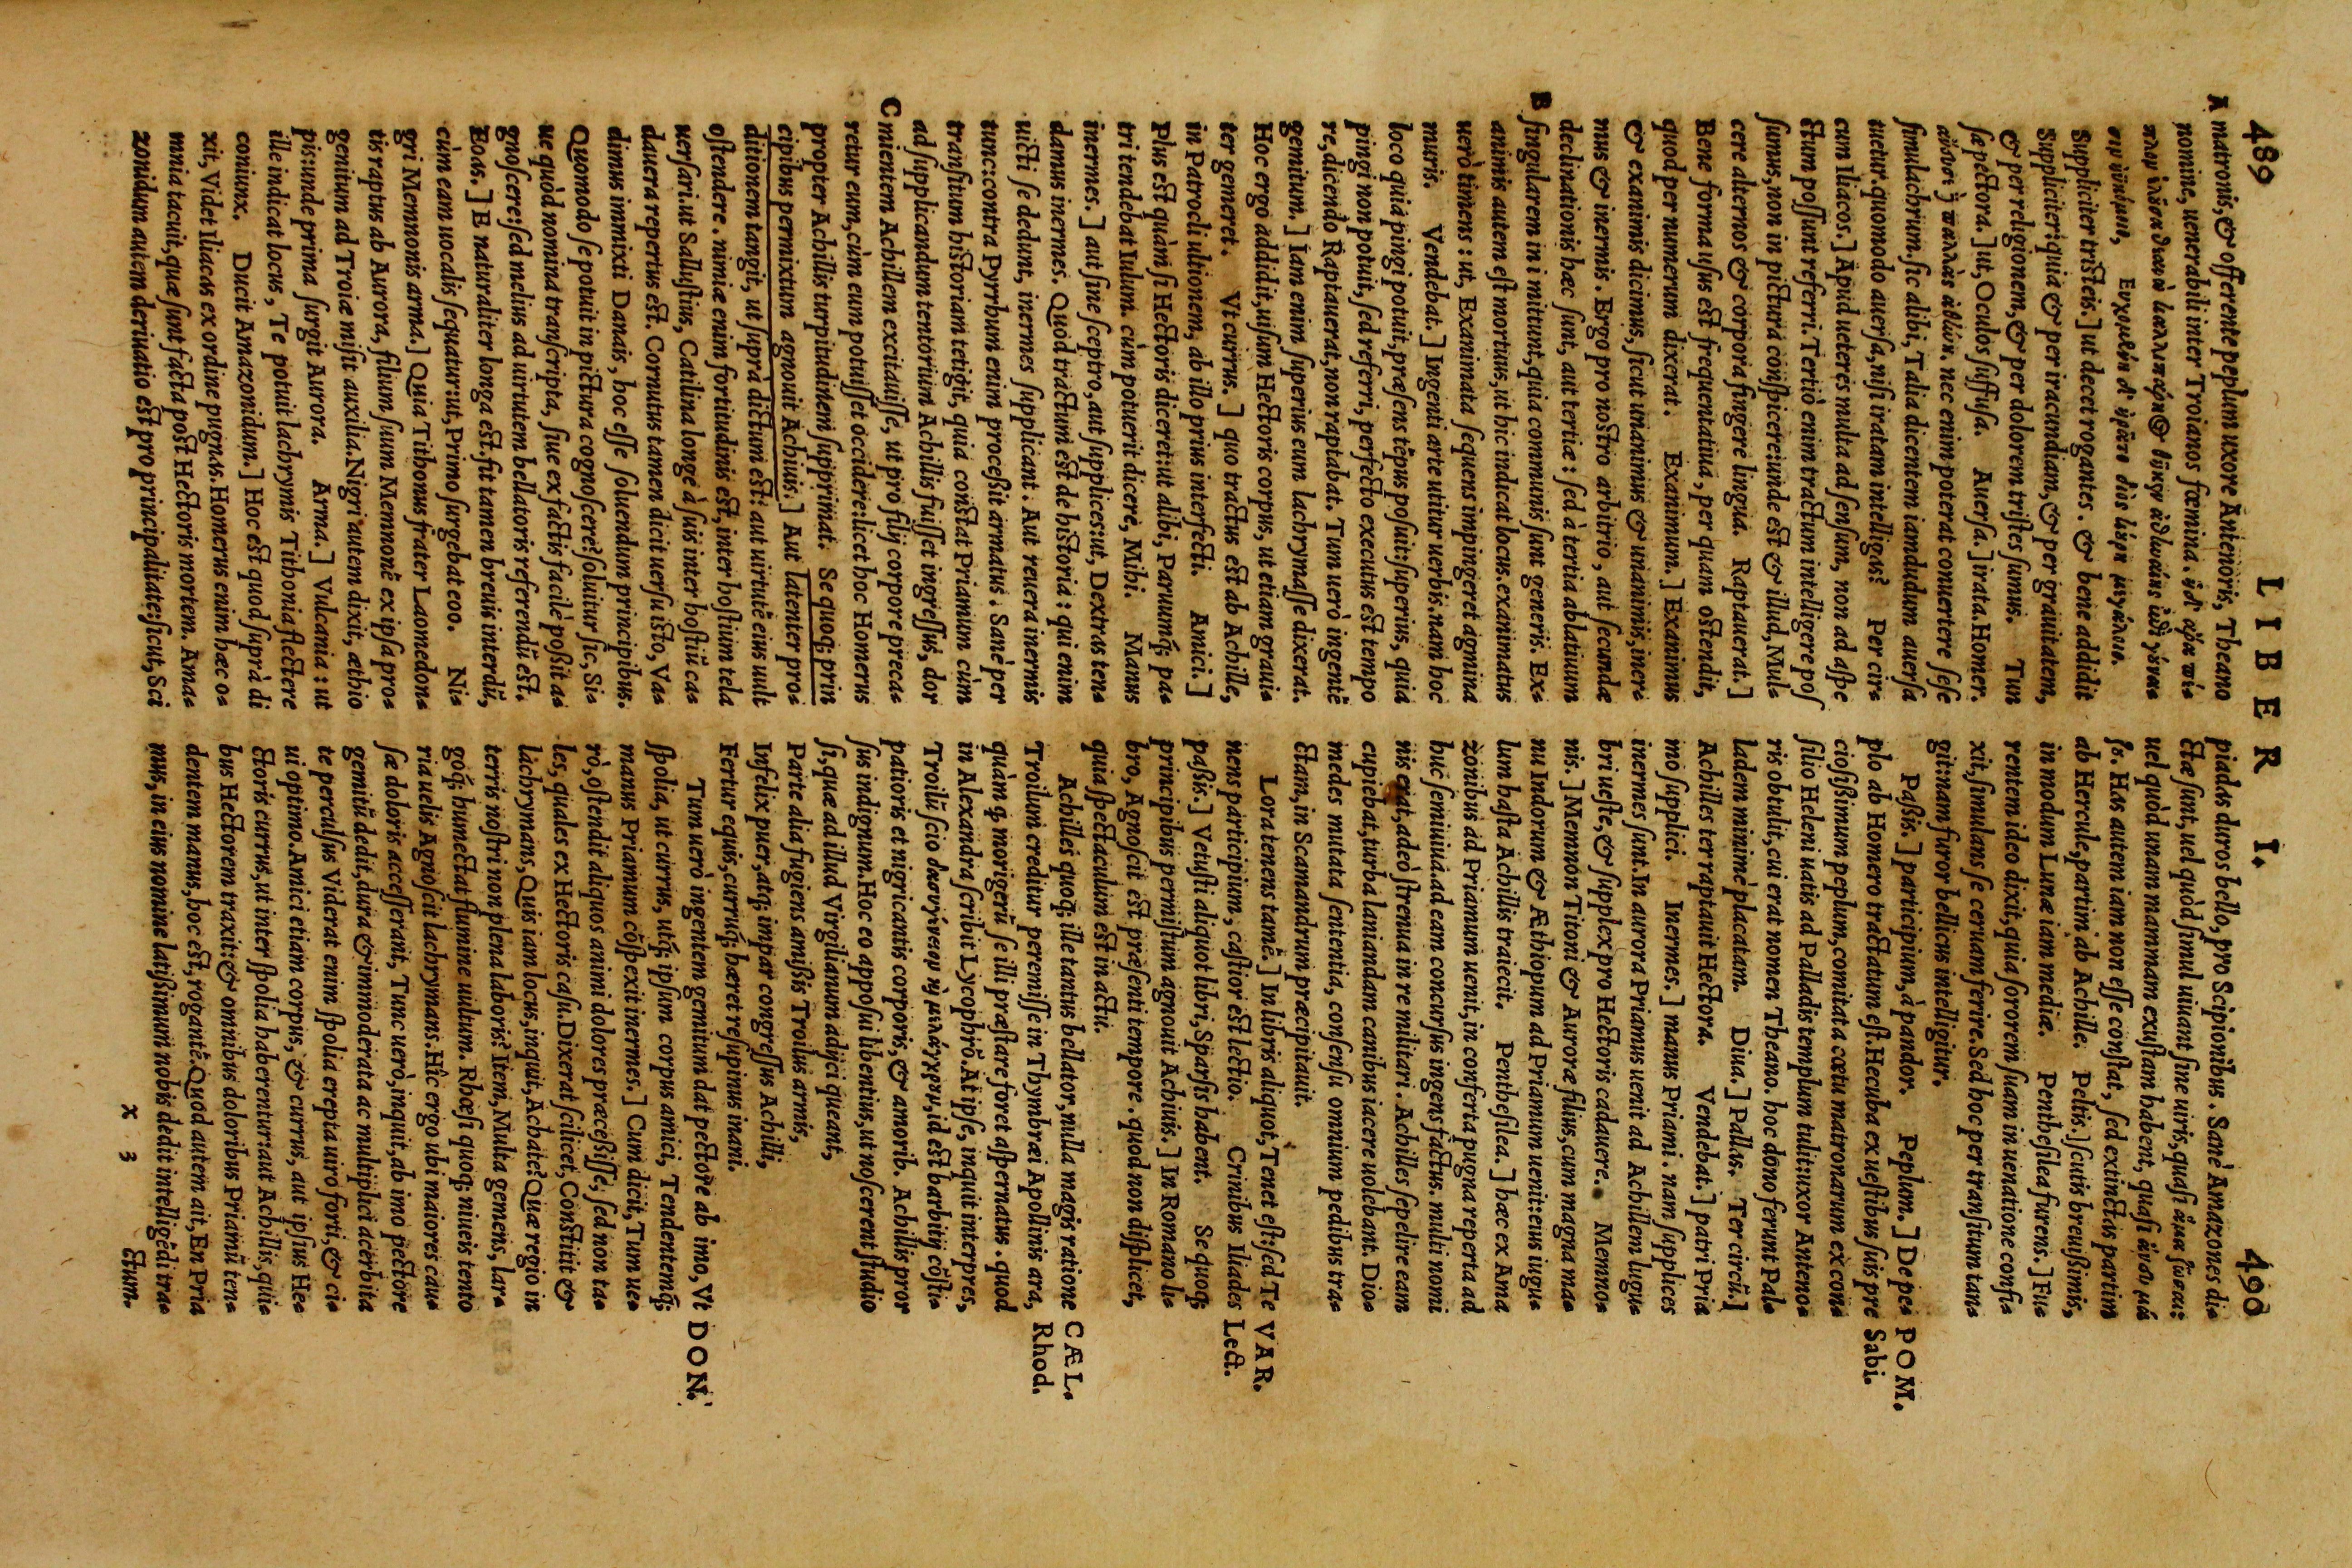 489 LIBER I. 490
A matronis, & offerente peplum uxore Antenoris, Theano
nomine, uenerabili inter Troianos fœmina.
Ευχομένη δ᾽ ἠρᾶτο διὸς κούρῃ μεγάλοιο.
Suppliciter tristeis.] ut decet rogantes. & bene addidit
Suppliciter: quia & per iracundiam, & per grauitatem,
& per religionem, & per dolorem tristes sumus. Tun
sæ pectora.] ut, Oculos suffusa. Auersa.] irata. Homer.
nec enim poterat conuertere sese
simulachrum. sic alibi, Talia dicentem iamdudum auersa
tuetur. quomodo auersa, nisi iratam intelligas? Per cir-
cum Iliacos.] Apud ueteres multa ad sensum, non ad aspe
ctum possunt referri. Tertiò enim tractum intelligere pos
sumus, non in pictura conspicere: unde est & illud, Mul-
cere alternos & corpora fingere lingua. Raptauerat.]
Bene forma usus est frequentatiua, per quam ostendit,
quod per numerum dixerat. Exanimum.] Exanimus
& exanimis dicimus, sicut unanimus & unanimis, iner-
mus & inermis. Ergo pro nostro arbitrio, aut secundæ
declinationis hæc sunt, aut tertiæ: sed à tertia ablatiuum
B singularem in i mittunt, quia communis sunt generis. Ex-
animis autem est mortuus, ut hic indicat locus. exanimatus
uerò timens: ut, Exanimata sequens impingeret agmina
muris. Vendebat.] Ingenti arte utitur uerbis. nam hoc
loco quia pingi potuit, præsens tẽpus posuit: superius, quia
pingi non potuit, sed referri, perfecto executus est tempo
re, dicendo Raptauerat, non raptabat. Tum uerò ingentẽ
gemitum.] Iam enim superius eum lachrymasse dixerat.
Hoc ergo addidit, uisum Hectoris corpus, ut etiam graui-
ter gemeret. Vt currus.] quo tractus est ab Achille,
in Patrocli ultionem, ab illo prius interfecti. Amici.]
Plus est quàm si Hectoris diceret: ut alibi, Paruumq́; pa-
tri tendebat Iulum. cùm potuerit dicere, Mihi. Manus
inermes.] aut sine sceptro, aut supplices: ut, Dextras ten-
damus inermes. Quòd tractum est de historia: qui enim
uicti se dedunt, inermes supplicant. Aut reuera inermis
tunc: contra Pyrrhum enim proceßit armatus. Sanè per
transitum historiam tetigit, quia constat Priamum cùm
ad supplicandum tentorium Achillis fuisset ingressus, dor
C mientem Achillem excitauisse, ut pro filij corpore preca-
retur eum, cùm eum potuisset occidere: licet hoc Homerus
propter Achillis turpitudinem supprimat. Se quoq; prin
cipibus permixtum agnouit Achiuis.] Aut latenter pro-
ditionem tangit, ut suprà dictum est: aut uirtutẽ eius uult
ostendere. nimiæ enim fortitudinis est, inter hostium tela
uersari. ut Sallustius, Catilina longè à suis inter hostiũ ca-
dauera repertus est. Cornutus tamen dicit uersu isto, Va-
dimus immixti Danais, hoc esse soluendum principibus.
Quomodo se potuit in pictura cognoscere? soluitur sic, Si-
ue quòd nomina transcripta, siue ex factis facilè poßit a-
gnoscere: sed melius ad uirtutem bellatoris referendũ est.
Eoas.] E naturaliter longa est. fit tamen breuis interdũ,
cùm eam uocalis sequatur: ut, Primo surgebat eoo. Ni-
gri Memnonis arma.] Quia Tithonus frater Laomedon-
tis raptus ab Aurora, filium suum Memnonẽ ex ipsa pro-
genitum ad Troiæ misit auxilia. Nigri autem dixit, æthio
pis: unde prima surgit Aurora. Arma.] Vulcania: ut
ille indicat locus, Te potuit lachrymis Tithonia flectere
coniunx. Ducit Amazonidum.] Hoc est quod suprà di
xit, Videt Iliacas ex ordine pugnas. Homerus enim hæc o-
mnia tacuit, quæ sunt facta post Hectoris mortem. Ama-
zonidum autem deriuatio est pro principalitate: sicut, Sci
piadas duros bello, pro Scipionibus. Sanè Amazones di-
ctæ sunt, uel quòd simul uiuant sine uiris, quasi
uel quòd unam mammam exustam habent, quasi
Has autem iam non esse constat, sed extinctas partim
ab Hercule, partim ab Achille. Peltis.] scutis breuißimis,
in modum Lunæ iam mediæ. Penthesilea furens.] Fu-
rentem ideo dixit, quia sororem suam in uenatione confi-
xit, simulans se ceruam ferire. Sed hoc per transitum tan-
git: nam furor bellicus intelligitur.
Paßis.] participium, à pandor. Peplum.] De pe- POM.
plo ab Homero tractatum est. Hecuba ex uestibus suis pre Sabi.
ciosißimum peplum, comitata cœtu matronarum ex con-
silio Heleni uatis ad Palladis templum tulit: uxor Anteno-
ris obtulit, cui erat nomen Theano. hoc dono ferunt Pal-
ladem minimè placatam. Diua.] Pallas. Ter circũ.]
Achilles ter raptauit Hectora. Vendebat.] patri Pria
mo supplici. Inermes.] manus Priami. nam supplices
inermes sunt. In aurora Priamus uenit ad Achillem lugu-
bri ueste, & supplex pro Hectoris cadauere. Memno-
nis.] Memnon Titoni & Auroræ filius, cum magna ma-
nu Indorum & Æthiopum ad Priamum uenit: eius iugu-
lum hasta Achillis traiecit. Penthesilea.] hæc ex Ama
zonibus ad Priamum uenit, in conferta pugna reperta ad
huc semiuiua. ad eam concursus ingens factus. multi nomi
nis erat, adeò strenua in re militari. Achilles sepelire eam
cupiebat, turba laniandam canibus iacere uolebant. Dio-
medes mutata sententia, consensu omnium pedibus tra-
ctam, in Scamandrum præcipitauit.
Lora tenens tamẽ.] In libris aliquot, Tenet est: sed Te VAR.
nens participium, castior est lectio. Crinibus Iliades Lect.
paßis.] Vetusti aliquot libri, Sparsis habent. Se quoq;
principibus permistum agnouit Achiuis.] In Romano li-
bro, Agnoscit est præsenti tempore. quod non displicet,
quia spectaculum est in actu.
Achilles quoq; ille tantus bellator, nulla magis ratione CÆL.
Troilum creditur peremisse in Thymbræi Apollinis ara, Rhod.
quàm q̃ morigerũ se illi præstare foret aspernatus. quod
in Alexandra scribit Lycophrõ. At ipse, inquit interpres,
Troilũ scio id est barbitij cõsti-
patioris et nigricantis corporis, & amorib. Achillis pror
sus indignum. Hoc eo apposui libentius, ut noscerent studio
si, quæ ad illud Virgilianum adijci queant,
Parte alia fugiens amißis Troilus armis,
Infelix puer, atq; impar congressus Achilli,
Fertur equis, curruq́; hæret resupinus inani.
Tum uerò ingentem gemitum dat pectore ab imo, Vt DON.
spolia, ut currus, utq́; ipsum corpus amici, Tendentemq́;
manus Priamum cõspexit inermes.] Cum dicit, Tum ue-
rò, ostendit aliquos animi dolores præceßisse, sed non ta-
les, quales ex Hectoris casu. Dixerat scilicet, Constitit &
lachrymans, Quis iam locus, inquit, Achate? Quæ regio in
terris nostri non plena laboris? Item, Multa gemens, lar-
goq́; humectat flumine uultum. Rhœsi quoq; niueis tento
ria uelis Agnoscit lachrymans. Hîc ergo ubi maiores cau-
sæ doloris accesserant, Tunc uerò, inquit, ab imo pectore
gemitũ dedit, dura & immoderata ac multiplici acerbita
te perculsus Viderat enim spolia erepta uiro forti, & ci-
ui optimo. Amici etiam corpus, & currus, aut ipsius He-
ctoris currus, ut inter spolia haberentur: aut Achillis, qui-
bus Hectorem traxit: & omnibus doloribus Priamũ ten-
dentem manus, hoc est, rogantẽ. Quod autem ait, En Pria
mus, in eius nomine latißimum nobis dedit intelligẽdi tra-
x 3 ctum.